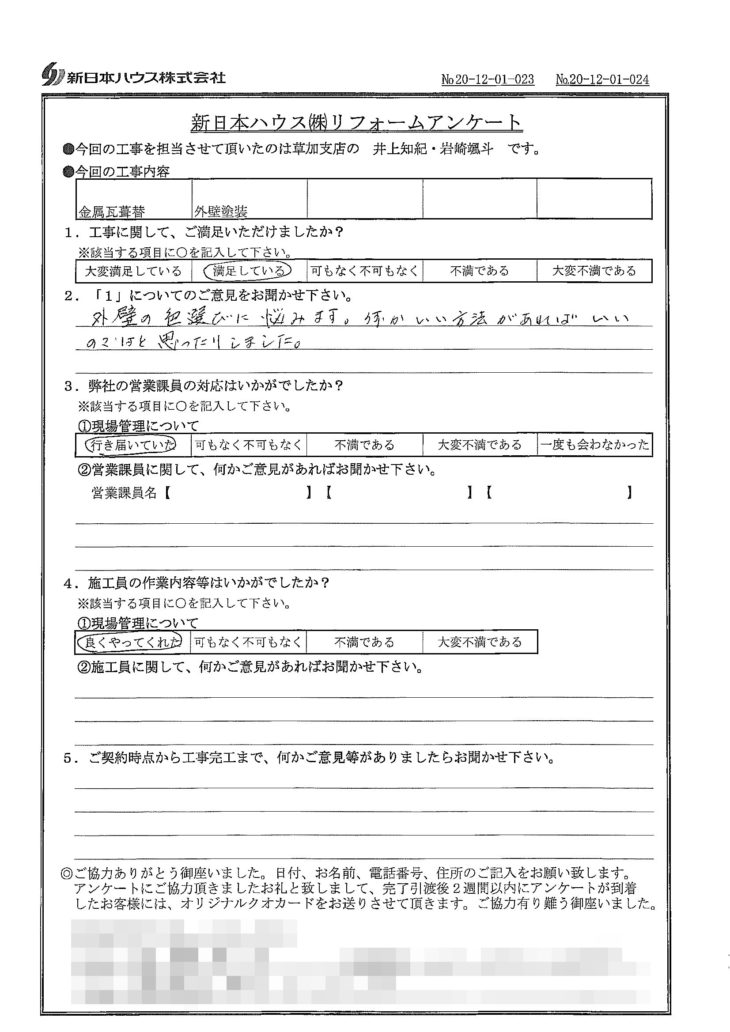 新日本ハウス株式会社
No.20-12-01-023 No.20-12-01-024
新日本ハウス㈱リフォームアンケート
●今回の工事を担当させて頂いたのは草加支店の 井上知紀・岩崎颯斗 です。
●今回の工事内容
金属瓦葺替 外壁塗装
1．工事に関して、ご満足いただけましたか？
※該当する項目に○を記入して下さい。
大変満足している 満足している 可もなく不可もなく 不満である 大変不満である
2．「1」についてのご意見をお聞かせ下さい。
外壁の色選びに悩みます。何かいい方法があればいい
のではと思ったりしました。
3．弊社の営業課員の対応はいかがでしたか？
※該当する項目に○を記入して下さい。
①現場管理について
行き届いていた 可もなく不可もなく 不満である 大変不満である 一度も会わなかった
②営業課員に関して、何かご意見があればお聞かせ下さい。
営業課員名【 】【 】【 】
4．施工員の作業内容等はいかがでしたか？
※該当する項目に○を記入して下さい。
①現場管理について
良くやってくれた 可もなく不可もなく 不満である 大変不満である
②施工員に関して、何かご意見があればお聞かせ下さい。
5．ご契約時点から工事完工まで、何かご意見等がありましたらお聞かせ下さい。
◎ご協力ありがとう御座いました。日付、お名前、電話番号、住所のご記入をお願い致します。
アンケートにご協力頂きましたお礼と致しまして、完了引渡後２週間以内にアンケートが到着
したお客様には、オリジナルクオカードをお送りさせて頂きます。ご協力有り難う御座いました。